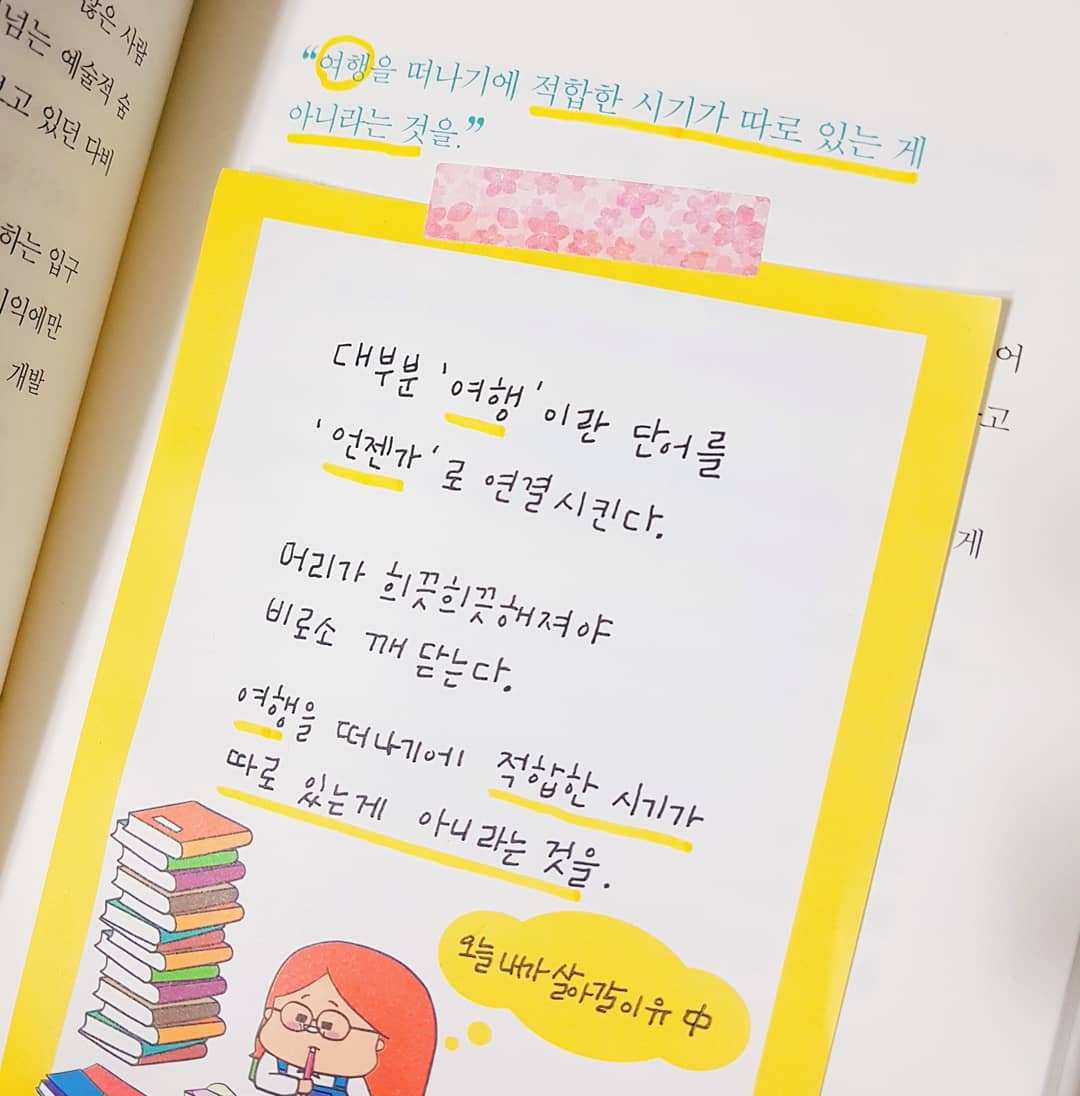 않은 사람
넘는 예술적 숨
고 있던 다비
하는 입구
이익에만
개발
“여행을 떠나기에 적합한 시기가 따로 있는 게
아니라는 것을.”
어
고
게
대부분 '여행'이란 단어를
'언젠가'로 연결시킨다.
머리가 희끗희끗해져야
비로소 깨 닫는다.
여행을 떠나기에 적합한 시기가
따로 있는게 아니라는 것을.
오늘 내가 살아갈이유 中